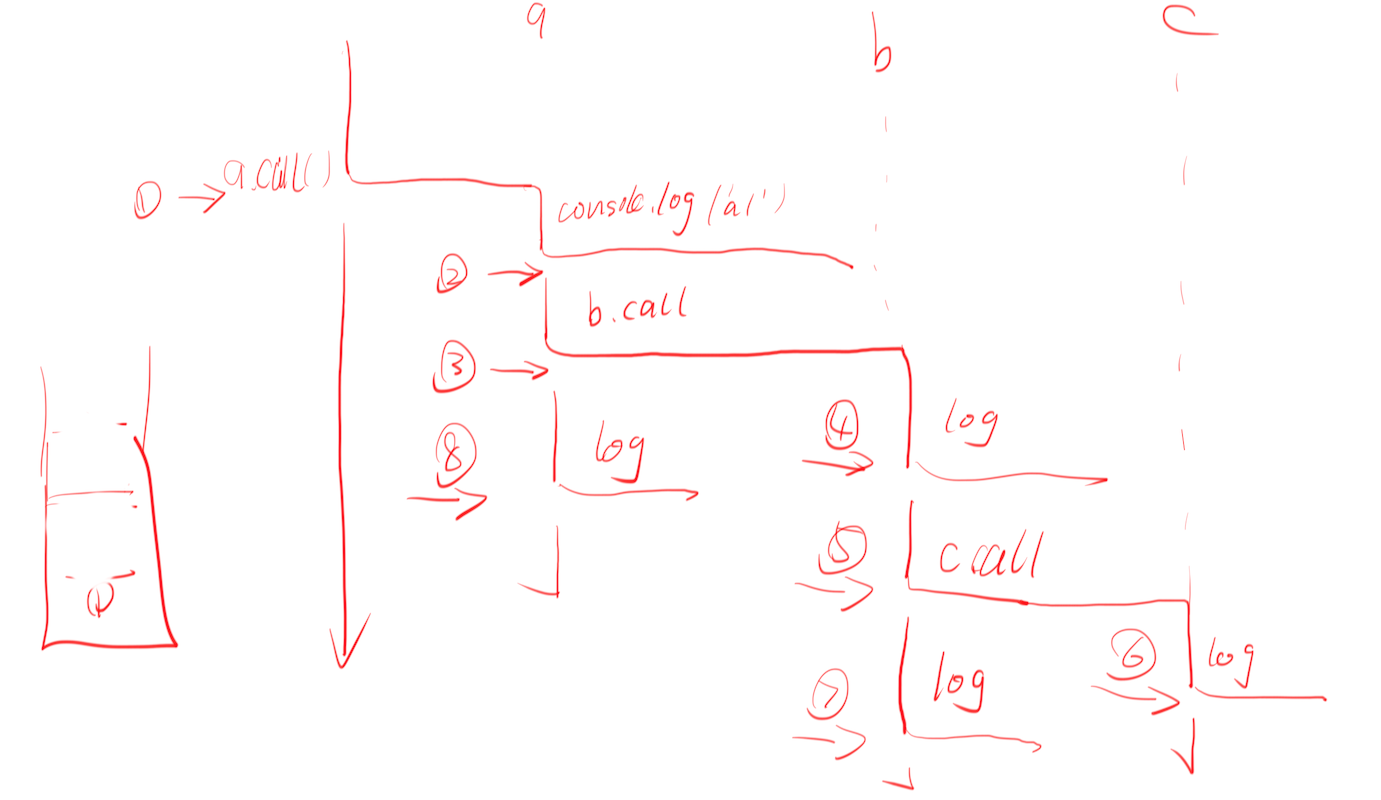 a
b
c
① → a.call()
console.log('a1')
② →
b.call
③ →
④ log
⑧ log
⑤ c.call
⑥ log
⑦ log
①